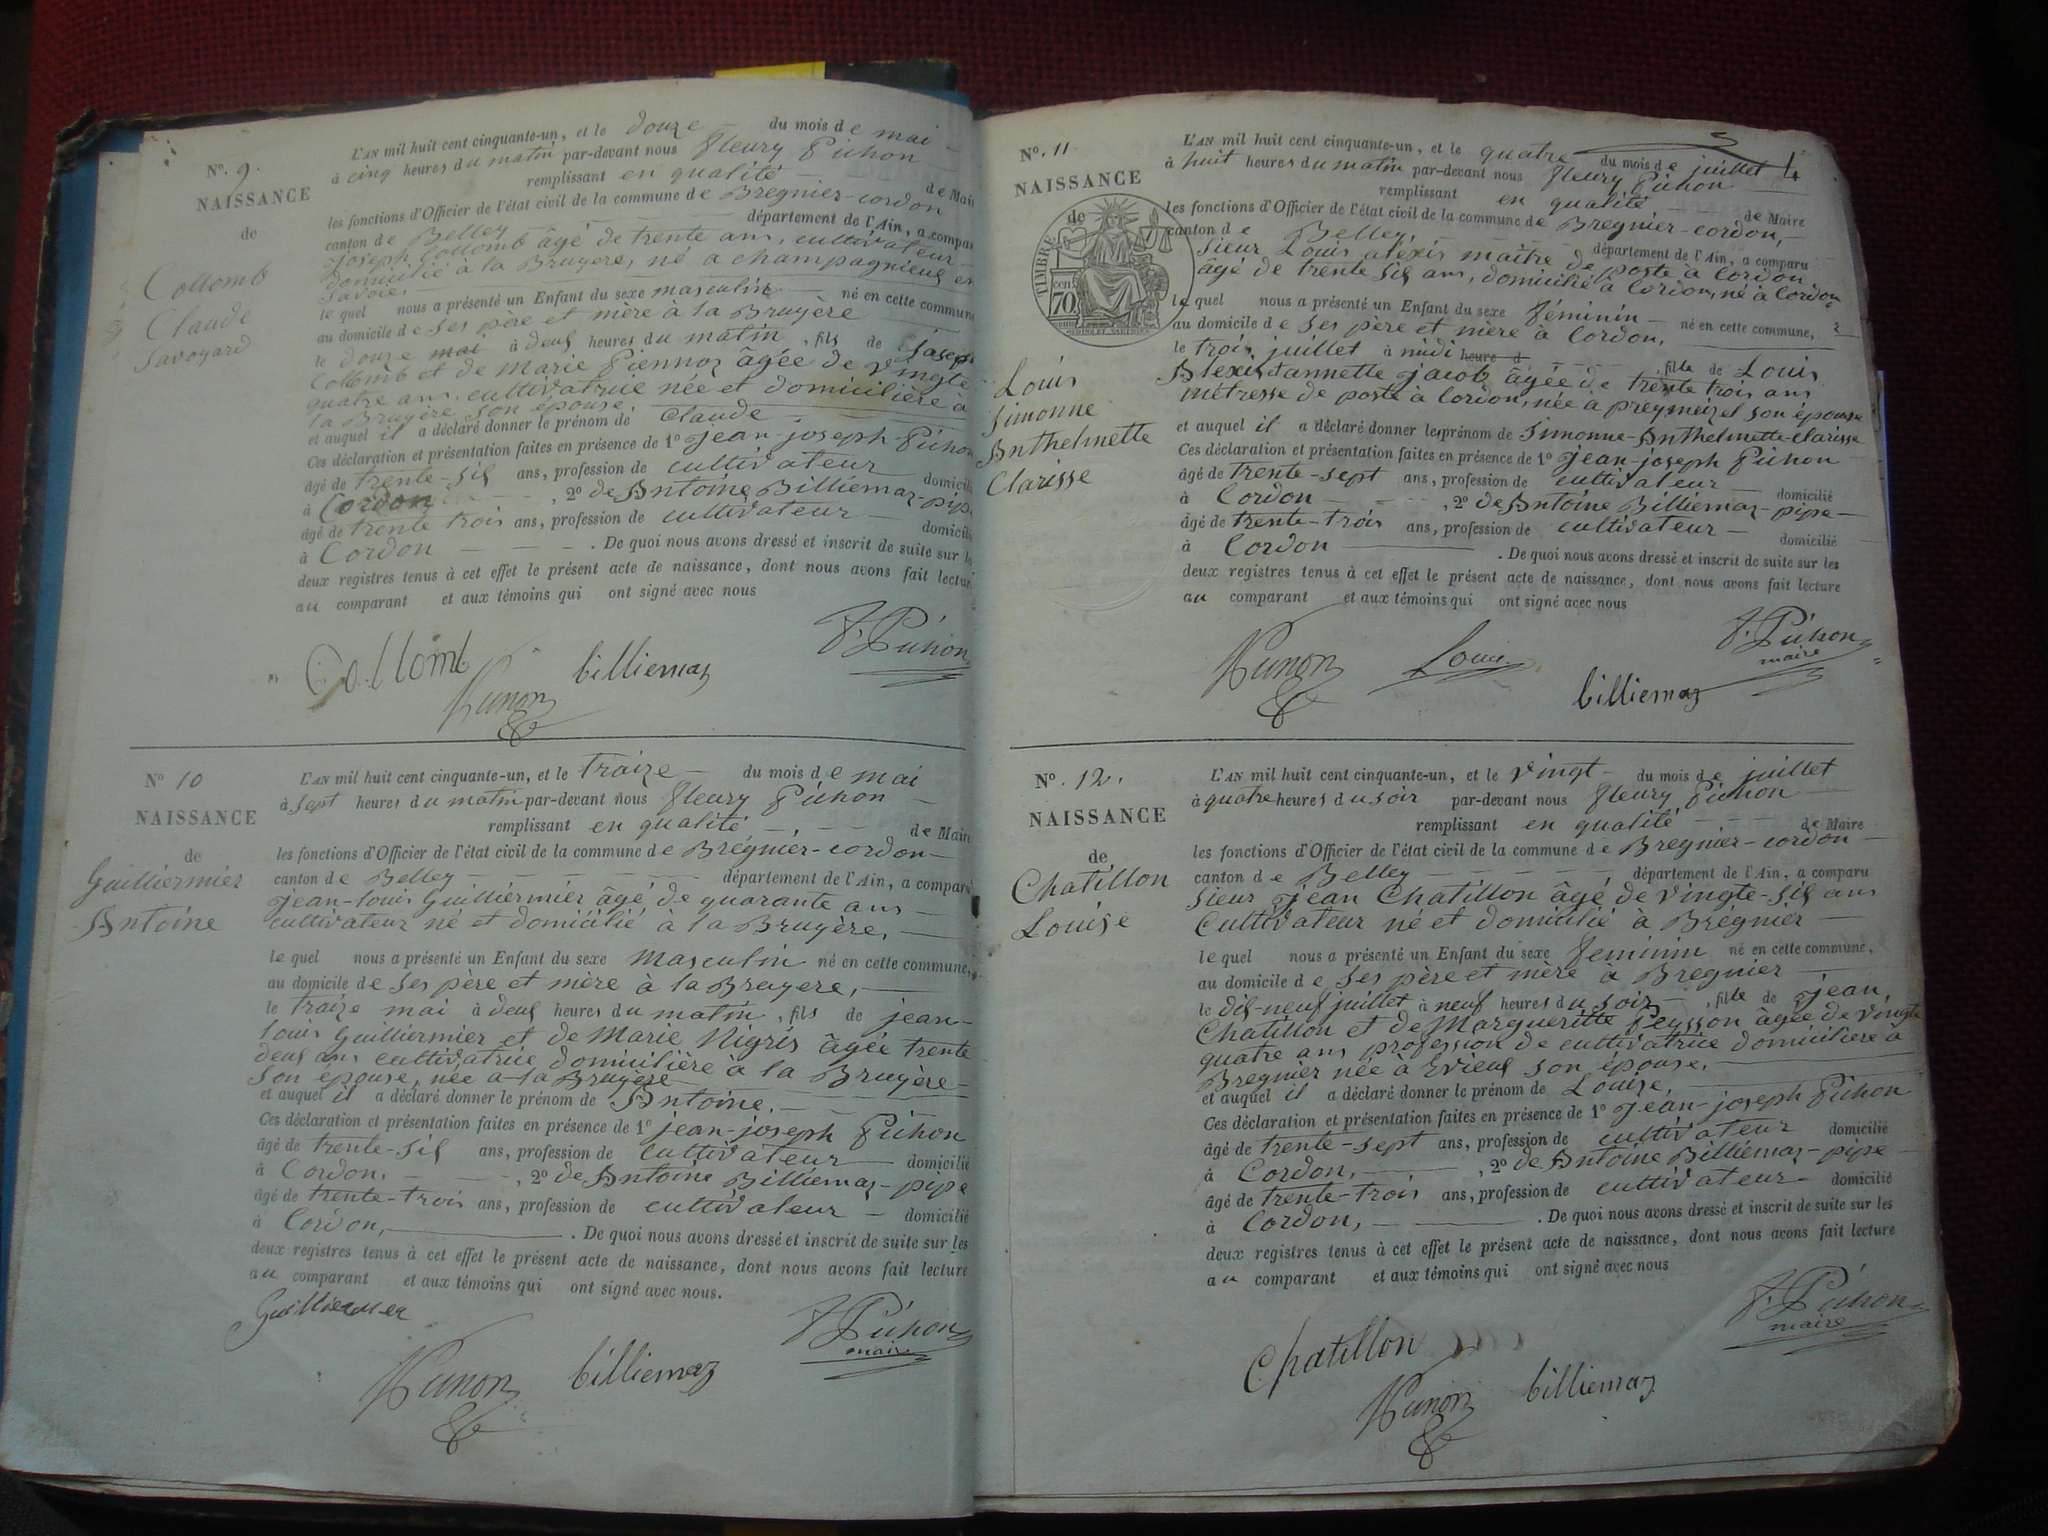 N°. 9.
NAISSANCE
de
Collomb
Claude
Savoyard
L'AN mil huit cent cinquante-un, et le douze du mois de mai
à cinq heures du matin par-devant nous fleury Pichon
remplissant en qualité de Mair
les fonctions d'Officier de l'état civil de la commune de Bregnier-cordon
canton de Belley département de l'Ain, a compar
joseph Collomb âgé de trente ans, cultivateur
domicilié à la Bruyere, né a champagnieux en
Savoie.
le quel nous a présenté un Enfant du sexe masculin né en cette commune
au domicile de ses père et mère à la Bruyère
le douze mai à deux heures du matin, fils de Joseph
Collomb et de Marie Piennoz âgée de vingte
quatre ans, cultivatrice née et domicilière à
la Bruyère son épouse
et auquel il a déclaré donner le prénom de Claude
Ces déclaration et présentation faites en présence de 1° jean-joseph Pichon
âgé de trente-six ans, profession de cultivateur domicili
à Cordon, 2° de Antoine Billiemaz-pipe
âgé de trente trois ans, profession de cultivateur domicili
à Cordon. De quoi nous avons dressé et inscrit de suite sur le
deux registres tenus à cet effet le présent acte de naissance, dont nous avons fait lectur
au comparant et aux témoins qui ont signé avec nous
Collomb billiemaz F. Pichon
N° 10
NAISSANCE
de
Guilliermier
Antoine
L'AN mil huit cent cinquante-un, et le traize du mois de mai
à sept heures du matin par-devant nous fleury Pichon
remplissant en qualité de Maire
les fonctions d'Officier de l'état civil de la commune de Bregnier-cordon
canton de Belley département de l'Ain, a comparu
jean-louis Guilliermier âgé de quarante ans
cultivateur né et domicilié à la Bruyère,
le quel nous a présenté un Enfant du sexe Masculin né en cette commune,
au domicile de ses père et mère à la Bruyere,
le traize mai à deux heures du matin, fils de jean-
louis Guilliermier et de Marie Nigris âgée trente
deux ans cultivatrice domicilière à la Bruyère
son épouse, née a la Bruyère
et auquel il a déclaré donner le prénom de Antoine.
Ces déclaration et présentation faites en présence de 1° jean-joseph Pichon
âgé de trente-six ans, profession de cultivateur domicilié
à Cordon, 2° de Antoine Billiemaz-pipe
âgé de trente-trois ans, profession de cultivateur domicilié
à Cordon, . De quoi nous avons dressé et inscrit de suite sur les
deux registres tenus à cet effet le présent acte de naissance, dont nous avons fait lecture
au comparant et aux témoins qui ont signé avec nous.
Guilliermier
billiemaz F. Pichon
maire
4
N°. 11
NAISSANCE
de
TIMBRE
70 cen
Louis
Simonne
Anthelmette
Clarisse
L'AN mil huit cent cinquante-un, et le quatre du mois de juillet
à huit heures du matin par-devant nous fleury Pichon
remplissant en qualité de Maire
les fonctions d'Officier de l'état civil de la commune de Bregnier-cordon,
canton de Belley, département de l'Ain, a comparu
sieur Louis aléxis maitre de poste à Cordon
âgé de trente six ans, domicilié à Cordon, né à Cordon
le quel nous a présenté un Enfant du sexe féminin né en cette commune,
au domicile de ses père et mère à Cordon,
le trois juillet à midi heure d, fille de Louis
Alexis et annette jacob âgée de trente trois ans
métresse de poste à Cordon, née à preymeizel son épouse
et auquel il a déclaré donner les prénom de Simonne-Anthelmette-Clarisse
Ces déclaration et présentation faites en présence de 1° jean-joseph Pichon
âgé de trente-sept ans, profession de cultivateur domicilié
à Cordon, 2° de Antoine Billiemaz-pipe
âgé de trente-trois ans, profession de cultivateur domicilié
à Cordon. De quoi nous avons dressé et inscrit de suite sur les
deux registres tenus à cet effet le présent acte de naissance, dont nous avons fait lecture
au comparant et aux témoins qui ont signé avec nous
Louis F. Pichon
maire
billiemaz
N°. 12.
NAISSANCE
de
Chatillon
Louise
L'AN mil huit cent cinquante-un, et le vingt du mois de juillet
à quatre heures du soir par-devant nous fleury Pichon
remplissant en qualité de Maire
les fonctions d'Officier de l'état civil de la commune de Bregnier-cordon
canton de Belley, département de l'Ain, a comparu
sieur jean Chatillon âgé de vingte-six ans
Cultivateur né et domicilié à Brégnier
le quel nous a présenté un Enfant du sexe feminin né en cette commune,
au domicile de ses père et mère à Bregnier
le dix-neuf juillet à neuf heures du soir, fille de jean
Chatillon et de Margueritte Peysson âgée de vingte
quatre ans profession de cultivatrice domiciliere à
Bregnier née à Evieux son épouse.
et auquel il a déclaré donner le prénom de Louise,
Ces déclaration et présentation faites en présence de 1° jean-joseph Pichon
âgé de trente-sept ans, profession de cultivateur domicilié
à Cordon, 2° de Antoine Billiemaz-pipe
âgé de trente-trois ans, profession de cultivateur domicilié
à Cordon, . De quoi nous avons dressé et inscrit de suite sur les
deux registres tenus à cet effet le présent acte de naissance, dont nous avons fait lecture
au comparant et aux témoins qui ont signé avec nous
F. Pichon
maire
Chatillon
billiemaz